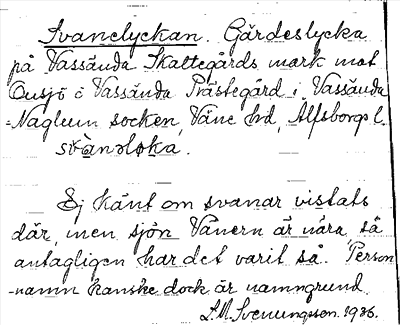 Svanelyckan. Gärdeslycka
på Vassända Skattegårds mark mot
Onsjö o Vassända Prästegård i Vassända
-Naglum socken, Väne hd, Älfsborgs l.
svànələka.
Ej känt om svanar vistats
där, men sjön Vänern är nära så
antagligen har det varit så. Person
-namn kanske dock är namngrund.
L.M. Svenungsson. 1936.